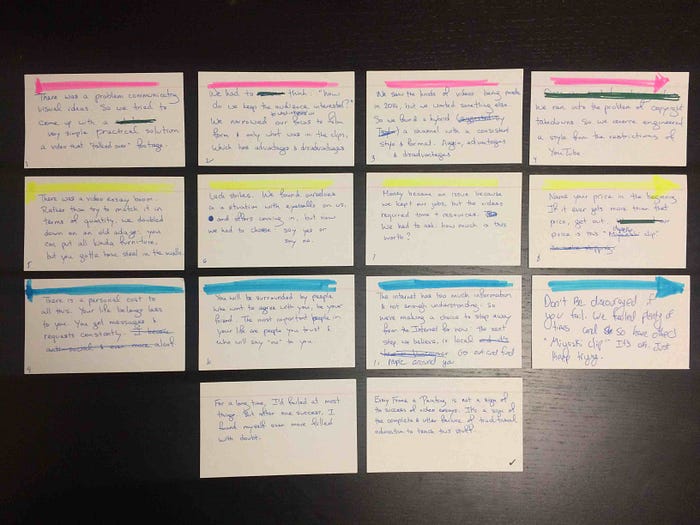 There was a problem communicating
visual ideas. So we tried to
come up with a
very simple practical solution
a video that "talked over" footage.
1
We had to think: "how
do we keep the audience interested?"
We narrowed our focus to film
form & only what was in the clips,
which has advantages & disadvantages
2
We saw the kinds of videos being made
in 2014, but we wanted something else.
So we found a hybrid
a channel with a consistent
style & format. Again, advantages
& disadvantages
3
We ran into the problem of copyright
takedowns. So we reverse engineered
a style from the restrictions of
YouTube.
4
There was a video essay boom.
Rather than try to match it in
terms of quantity, we doubled
down on an old adage: you
can put all kinds furniture,
but you gotta have steel in the walls
5
Luck strikes. We found ourselves
in a situation with eyeballs on us,
and offers coming in, but now
we had to choose: say yes or
say no.
6
Money became an issue because
we kept our jobs, but the videos
required time & resources.
We had to ask: how much is this
worth?
7
Name your price in the beginning.
If it ever gets more than that
price, get out.
price is this "Miyoski clip"
8
There is a personal cost to
all this. Your life belongs less
to you. You get messages &
requests constantly. It
anti-social & even more aloof
9
You will be surrounded by people
who want to agree with you, be your
friend. The most important people in
your life are people you trust &
who will say "no" to you.
The internet has too much information
& not enough understanding. So
we're making a choice to step away
from the Internet for now. The next
step we believe, is local
Go out and find
people around you
11
Don't be discouraged if
you fail. We failed plenty of
times and so have others
"Miyoski clip" It's ok. Just
keep trying.
For a long time, I'd failed at most
things. But after one success, I
found myself even more filled
with doubt.
Every Frame a Painting, is not a sign of
the success of video essays. It's a sign of
the complete & utter failure of traditional
education to teach this stuff.